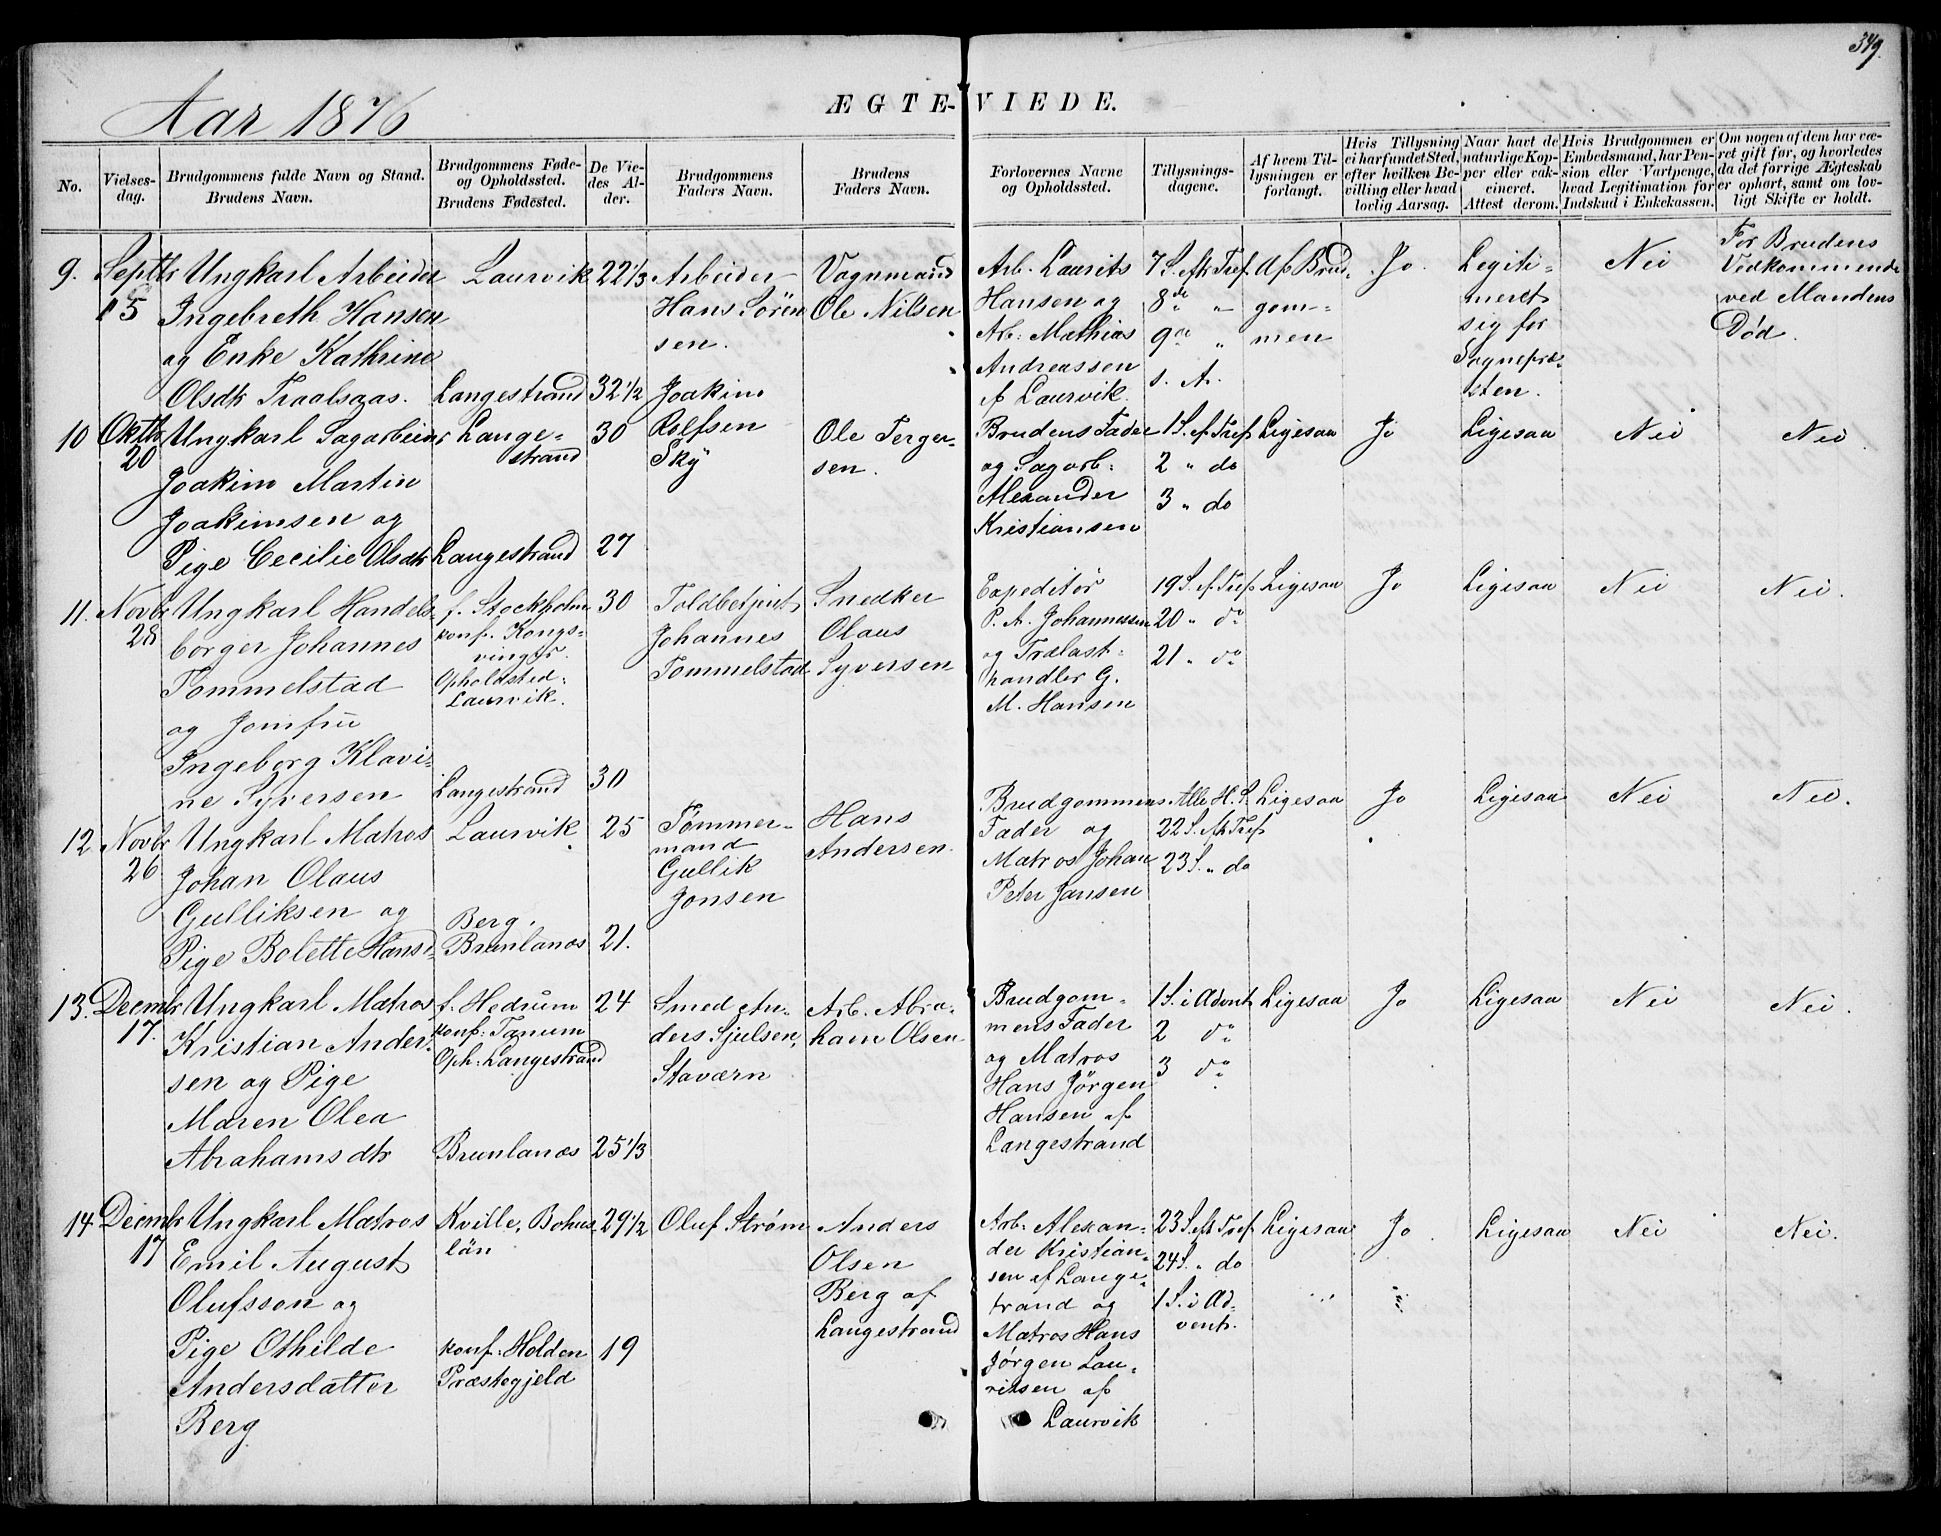 349.
Aar 1876
ÆGTE-VIEDE.
No.
Vielses-
dag.
Brudgommens fulde Navn og Stand.
Brudens Navn.
Brudgommens Føde-
og Opholdssted.
Brudens Fødested.
De Vie-
des Al-
der.
Brudgommens
Faders Navn.
Brudens
Faders Navn.
Forlovernes Navne
og Opholdssted.
Tillysnings-
dagene.
Af hvem Til-
lysningen er
forlangt.
Hvis Tillysning
ei har fundet Sted,
efter hvilken Be-
villing eller hvad
lovlig Aarsag.
Naar havt de
naturlige Kop-
per eller vak-
cineret.
Attest derom.
Hvis Brudgommen er
Embedsmand, har Pen-
sion eller Vartpenge,
hvad Legitimation for
Indskud i Enkekassen.
Om nogen af dem har væ-
ret gift før, og hvorledes
da det forrige Ægteskab
er ophørt, samt om lov-
ligt Skifte er holdt.
9.
Septbr
15
Ungkarl Arbeider
Ingebreth Hansen
og Enke Kathrine
Olsdtr Traalsaas.
Laurvik
Langestrand
22 1/3
32 1/2
Arbeider
Hans Sören
sen.
Vognmand
Ole Nilsen
Arb. Laurits
Hansen og
Arb. Mathias
Andreassen
af Laurvik.
7 S. eftr Tref
8de " "
9de "
s. A.
Af Brud-
gom-
men
Jo.
Legiti-
meret
sig for
Sognepræ-
sten.
Nei
For Brudens
Vedkommende
ved Mandens
Død.
10
Oktbr
20
Ungkarl Sagarbeider
Joakim Martin
Joakimsen og
Pige Cecilie Olsdtr
Lange-
strand
Langestrand
30
27
Joakim
Rolfsen
Sky
Ole Terger-
sen.
Brudens Fader
og Sagarb.
Alexander
Kristiansen
1 S. ef. Tref
2 " do
3 " do
Ligesaa
Jo
Ligesaa
Nei
Nei.
11.
Novbr
28
Ungkarl Handels-
borger Johannes
Tommelstad
og Jomfru
Ingeborg Klavi-
ne Syversen
f. Stockholm
konf. Kongs-
vinger.
Opholdsted.
Laurvik.
Langestrand
30
30
Toldbetjent
Johannes
Tommelstad
Snedker
Olaus
Syversen
Expeditör
P. A. Johannessen
og Trælast-
handler G.
M. Hansen
19 S. ef Tref
20 " do
21 " do
Ligesaa
Jo
Ligesaa
Nei
Nei.
12.
Novbr
26
Ungkarl Matros
Johan Olaus
Gulliksen og
Pige Bolette Hansd.
Laurvik
Berg.
Brunlanæs
25
21.
Tömmer-
mand
Gullik
Jonsen
Hans
Andersen.
Brudgommens
Fader og
Matros Johan
Peter Jansen
Alle H. S.
22 S. eft Tref
23 S. " do
Ligesaa
Jo
Ligesaa
Nei
Nei.
13.
Decmbr
17.
Ungkarl Matros
Kristian Ander-
sen og Pige
Maren Olea
Abrahamsdtr
f. Hedrum
konf. Tanum
Oph: Langestrand
Brunlanæs
24
25 1/3
Smed An-
ders Sjulsen,
Staværn
Arb. Abra-
ham Olsen
Brudgom-
mens Fader
og Matros
Hans Jörgen
Hansen af
Langestrand
1 S. i Advent
2 do
3 do
Ligesaa
Jo
Ligesaa
Nei
Nei.
14.
Decmbr
17
Ungkarl Matros
Emil August
Olufsson og
Pige Othilde
Andersdatter
Berg
Kville, Bohus-
län
konf. Holden
Præstegjeld
29 1/2
19
Oluf Strøm
Anders
Olsen
Berg af
Langestrand
Arb. Alexan-
der Kristian-
sen af Lange-
trand og
Matros Hans
Jørgen Lau-
ritsen af
Laurvik
23 S. eft Tref
24 S. " do
1 S. i Ad-
vent.
Ligesaa
Jo.
Ligesaa
Nei
Nei.